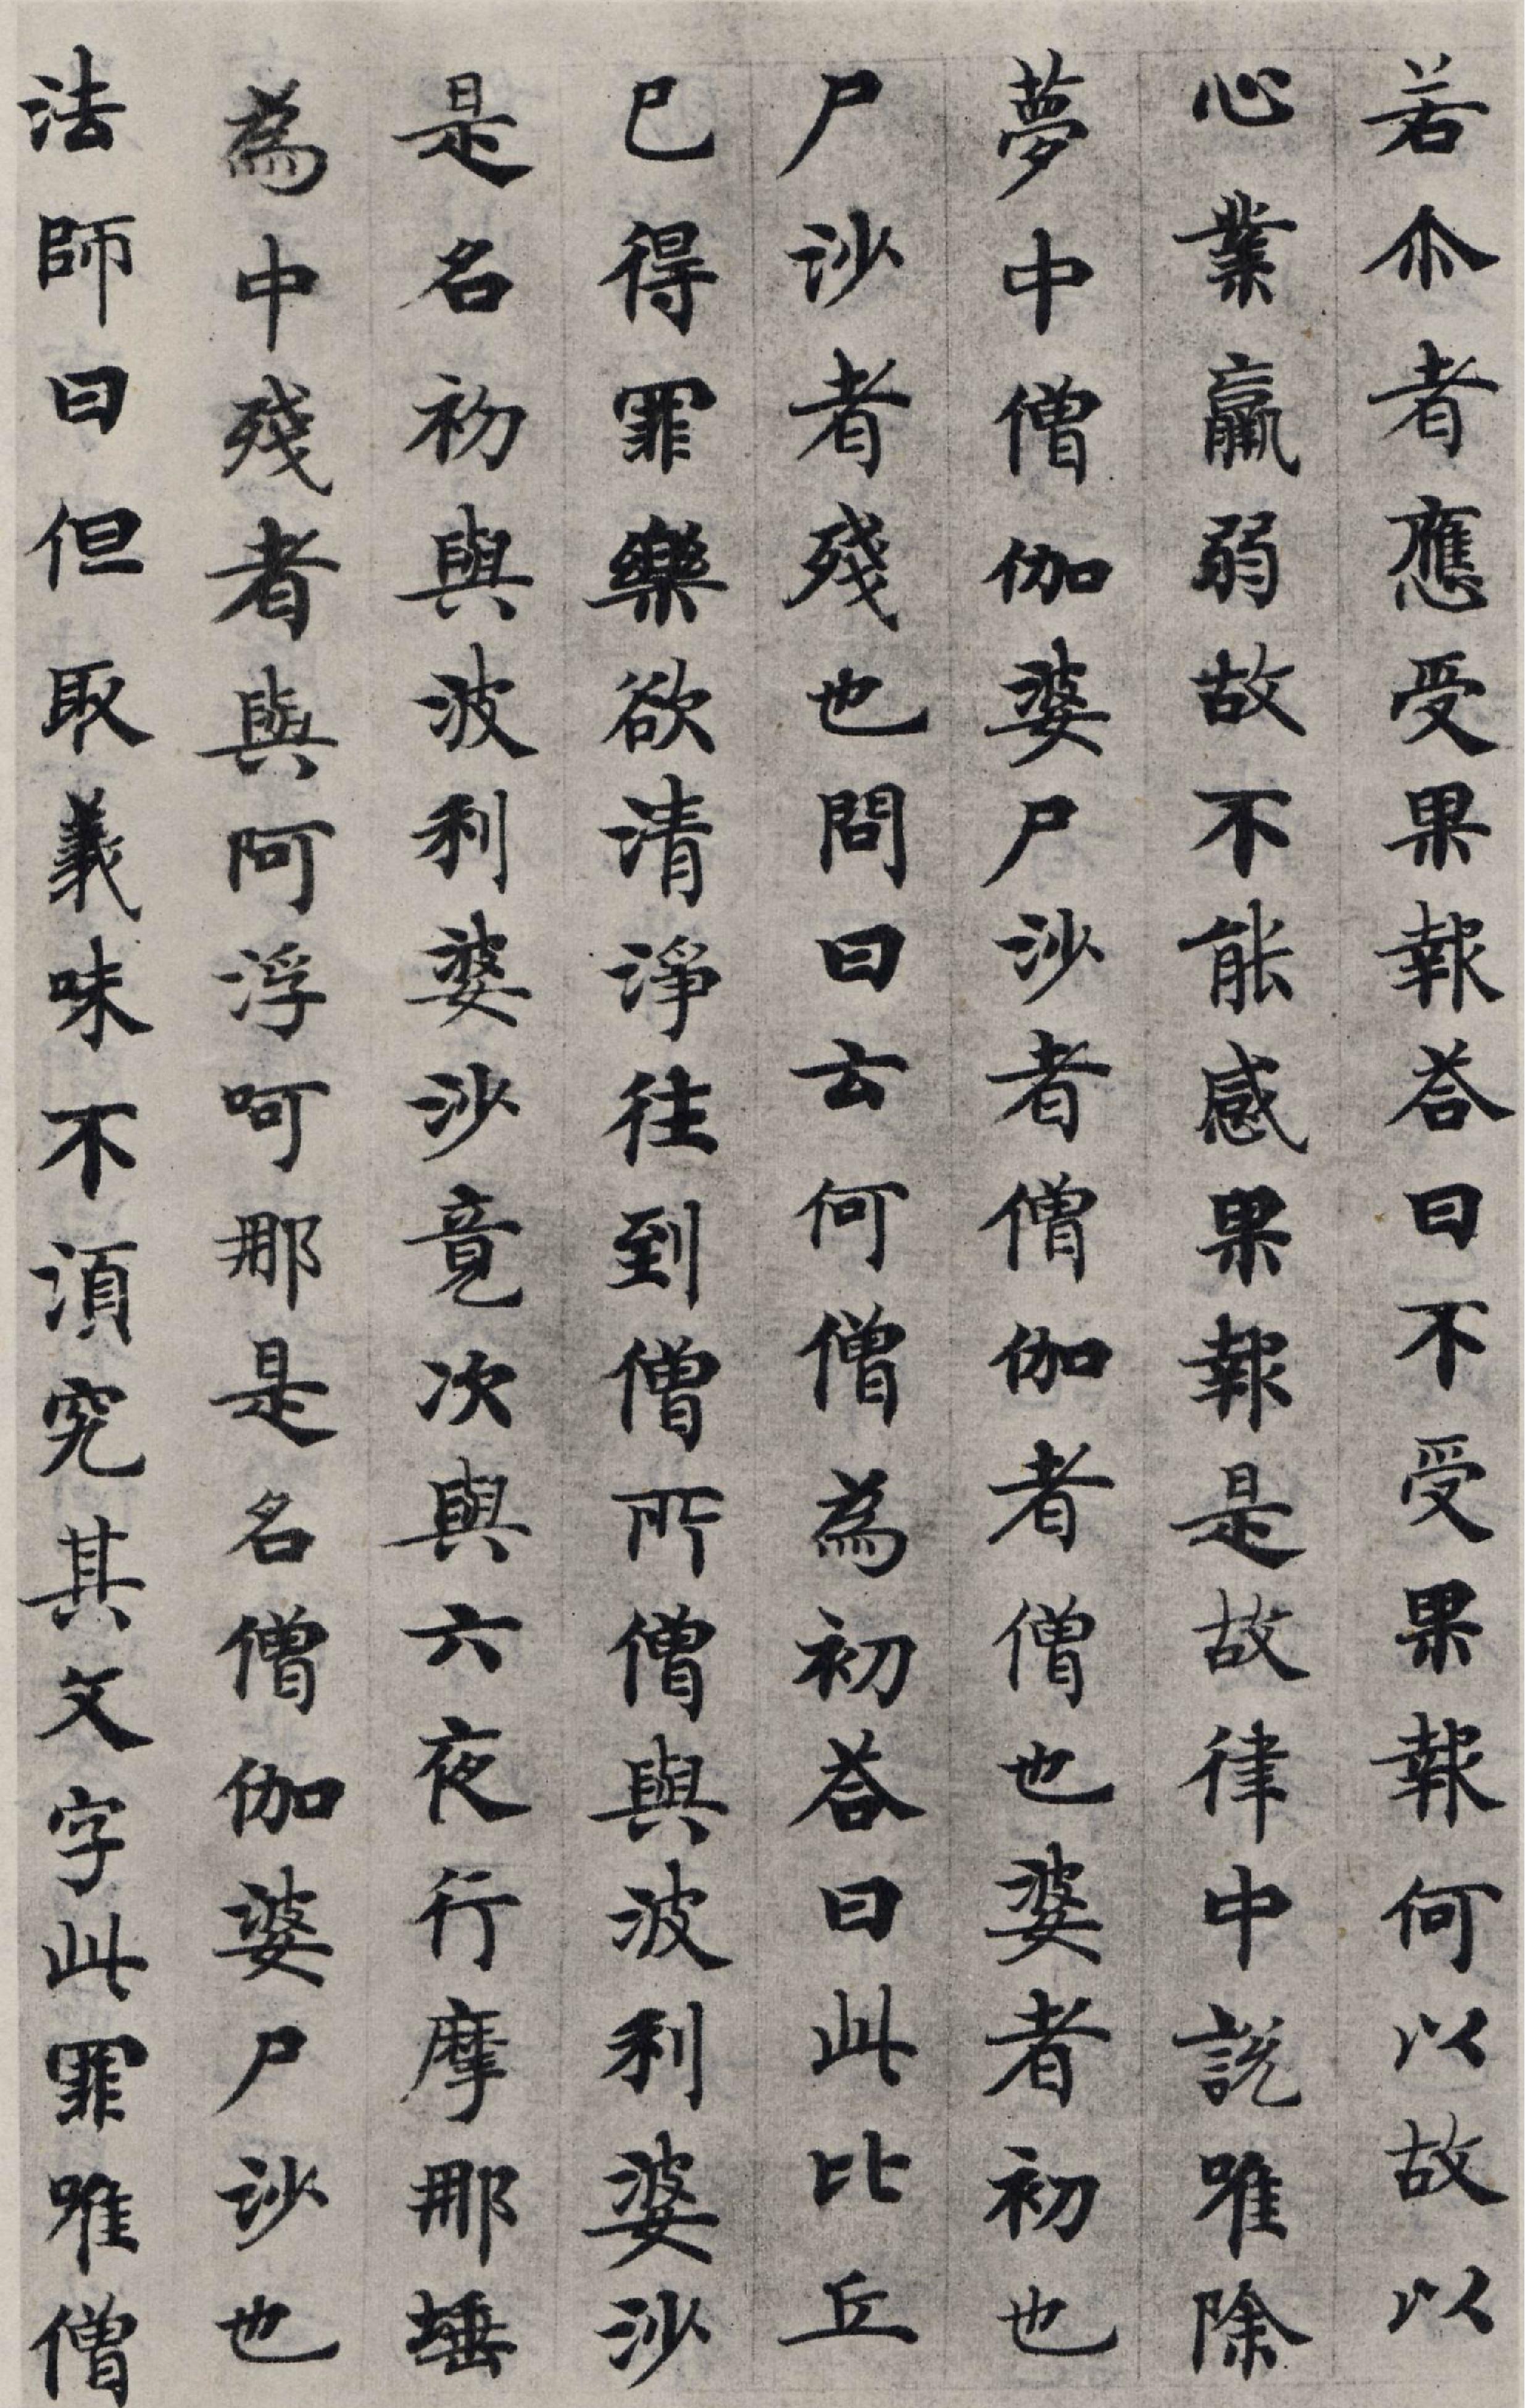 若尒者應受果報荅曰不受果報何以故以
心業羸弱故不能感果報是故律中說唯除
夢中僧伽婆尸沙者僧伽者僧也婆者初也
尸沙者殘也問曰云何僧為初荅曰此比丘
已得罪樂欲清淨往到僧所僧與波利婆沙
是名初與波利婆沙竟次與六夜行摩那埵
為中殘者與阿浮呵那是名僧伽婆尸沙也
法師曰但取義味不須究其文字此罪唯僧